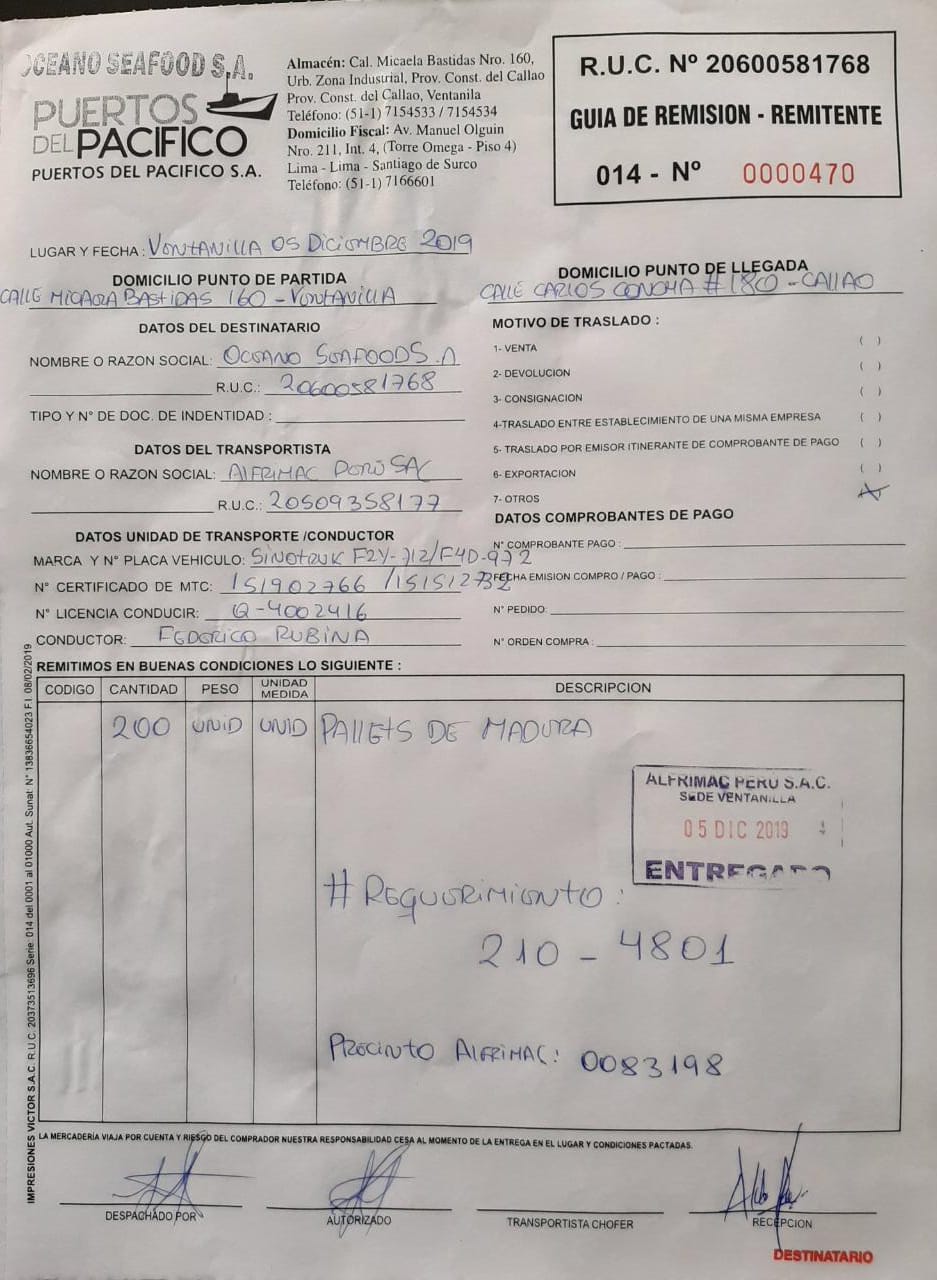 OCEANO SEAFOOD S.A.
PUERTOS
DEL PACIFICO
PUERTOS DEL PACIFICO S.A.
Almacén: Cal. Micaela Bastidas Nro. 160,
Urb. Zona Industrial, Prov. Const. del Callao
Prov. Const. del Callao, Ventanila
Teléfono: (51-1) 7154533 / 7154534
Domicilio Fiscal: Av. Manuel Olguin
Nro. 211, Int. 4, (Torre Omega - Piso 4)
Lima - Lima - Santiago de Surco
Teléfono: (51-1) 7166601
R.U.C. Nº 20600581768
GUIA DE REMISION - REMITENTE
014 - Nº 0000470
LUGAR Y FECHA : VENTANILLA 05 DICIEMBRE 2019
DOMICILIO PUNTO DE PARTIDA
CALLE MICAELA BASTIDAS 160 - VENTANILLA
DOMICILIO PUNTO DE LLEGADA
CALLE CARLOS CONCHA # 180 - CALLAO
DATOS DEL DESTINATARIO
NOMBRE O RAZON SOCIAL: OCEANO SEAFOOD S.A
R.U.C.: 20600581768
TIPO Y N° DE DOC. DE INDENTIDAD :
DATOS DEL TRANSPORTISTA
NOMBRE O RAZON SOCIAL: ALFRIMAC PERU SAC
R.U.C.: 20509358177
DATOS UNIDAD DE TRANSPORTE /CONDUCTOR
MARCA Y N° PLACA VEHICULO: SINOTRUK F2Y-712/F4D-972
N° CERTIFICADO DE MTC: 151902766 /151512732
N° LICENCIA CONDUCIR: Q-4002416
CONDUCTOR: FEDERICO RUBINA
MOTIVO DE TRASLADO :
1- VENTA ( )
2- DEVOLUCION ( )
3- CONSIGNACION ( )
4-TRASLADO ENTRE ESTABLECIMIENTO DE UNA MISMA EMPRESA ( )
5- TRASLADO POR EMISOR ITINERANTE DE COMPROBANTE DE PAGO ( )
6- EXPORTACION ( )
7- OTROS X
DATOS COMPROBANTES DE PAGO
N° COMPROBANTE PAGO :
FECHA EMISION COMPRO / PAGO :
N° PEDIDO:
N° ORDEN COMPRA :
REMITIMOS EN BUENAS CONDICIONES LO SIGUIENTE :
CODIGO CANTIDAD PESO UNIDAD MEDIDA DESCRIPCION
200 UNID UNID PALLETS DE MADERA
ALFRIMAC PERU S.A.C.
SEDE VENTANILLA
05 DIC 2019
ENTREGADO
# REQUERIMIENTO :
210 - 4801
PRECINTO ALFRIMAC: 0083198
LA MERCADERÍA VIAJA POR CUENTA Y RIESGO DEL COMPRADOR NUESTRA RESPONSABILIDAD CESA AL MOMENTO DE LA ENTREGA EN EL LUGAR Y CONDICIONES PACTADAS.
DESPACHADO POR
AUTORIZADO
TRANSPORTISTA CHOFER
RECEPCION
DESTINATARIO
IMPRESIONES VICTOR S.A.C. R.U.C. 20373513696 Serie: 014 del 0001 al 01000 Aut. Sunat: N° 13836654023 F.I. 08/02/2019